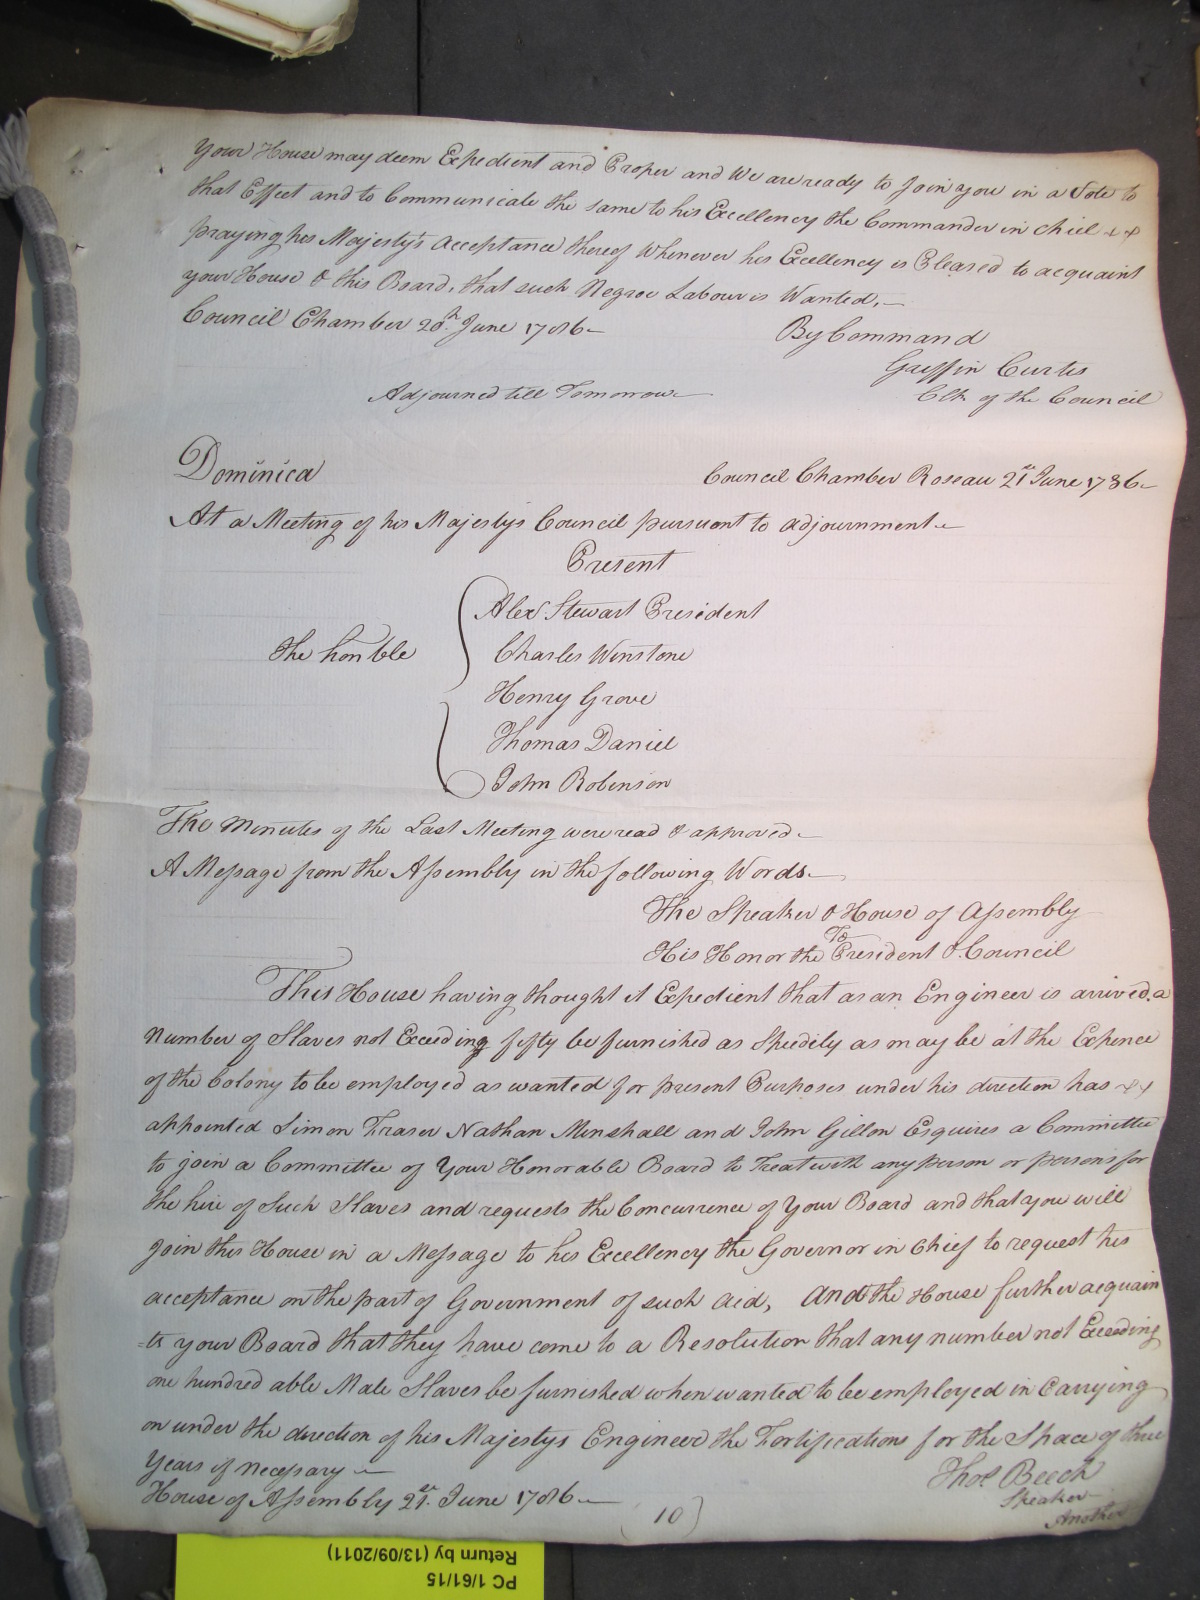 Your House may deem Expedient and Proper and We are ready to Join you in a Vote to
that Effect and to Communicate the same to his Excellency the Commander in chief
praying his Majesty's Acceptance thereof Whenever his Excellency is Pleased to acquaint
your House & this Board, that such Negroe Labour is Wanted,—
Council Chamber 20th June 1786—
By Command
Griffin Curtis
Clk of the Council
Adjourned till Tomorrow—
Dominica
Council Chamber Roseau 21st June 1786—
At a Meeting of his Majestys Council pursuant to adjournment—
Present
Alexr Stewart President
The honble
Charles Winstone
Henry Grove
Thomas Daniel
John Robinson
The Minutes of the Last Meeting were read & approved—
A Message from the Assembly in the following Words—
The Speaker & House of Assembly
To
His Honor the President & Council
This House having thought it Expedient that as an Engineer is arrived, a
Number of Slaves not Exceeding fifty be furnished as Speedily as may be at the Expence
of the Colony to be employed as wanted for present Purposes under his direction has
appointed Simon Fraser Nathan Minshall and John Gillon Esquires a Committee
to join a Committee of Your Honorable Board to Treat with any person or persons for
the hire of Such Slaves and requests the Concurrence of Your Board and that you will
Join this House in a Message to his Excellency the Governor in Chief to request his
acceptance on the part of Government of such aid, And the House further acquain
=ts your Board that they have come to a Resolution that any number not Exceeding
one hundred able Male Slaves be furnished when wanted to be employed in Carrying
on under the direction of his Majestys Engineer the Fortifications for the Space of three
Years if necessary—
Thos. Beech
Speaker
House of Assembly 21st. June 1786—
Another
(10)
PC 1/61/15
Return by (13/09/2011)